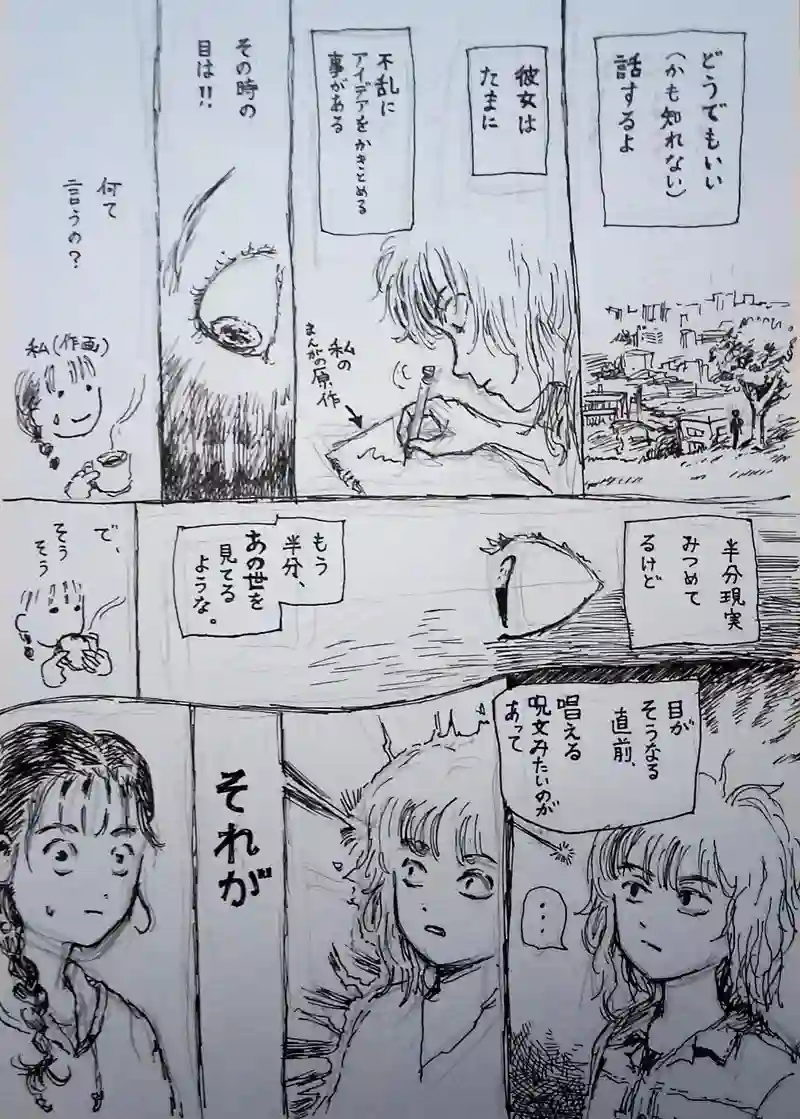 どうでもいい
(かも知れない)
話するよ
彼女は
たまに
不乱に
アイデアをかきとめる
事がある
私の
まんがの原作
その時の
目は!!
何て
言うの?
私(作画)
半分現実
みつめて
るけど
もう
半分、
あの世を
見てる
ような。
で、
そう
そう
目が
そうなる
直前、
唱える
呪文みたいのが
あって
…
それが